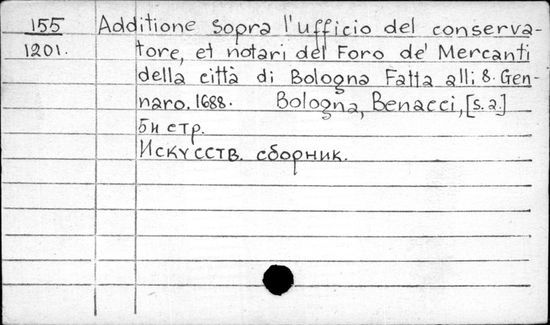 155 Additione sopra l'ufficio del conserva-
1201. tore, et notari del Foro de' Mercanti
della città di Bologna Fatta alli 8. Gen-
naro. 1688. Bologna, Benacci, [s.a.]
бн стр.
Искусств. сборник.